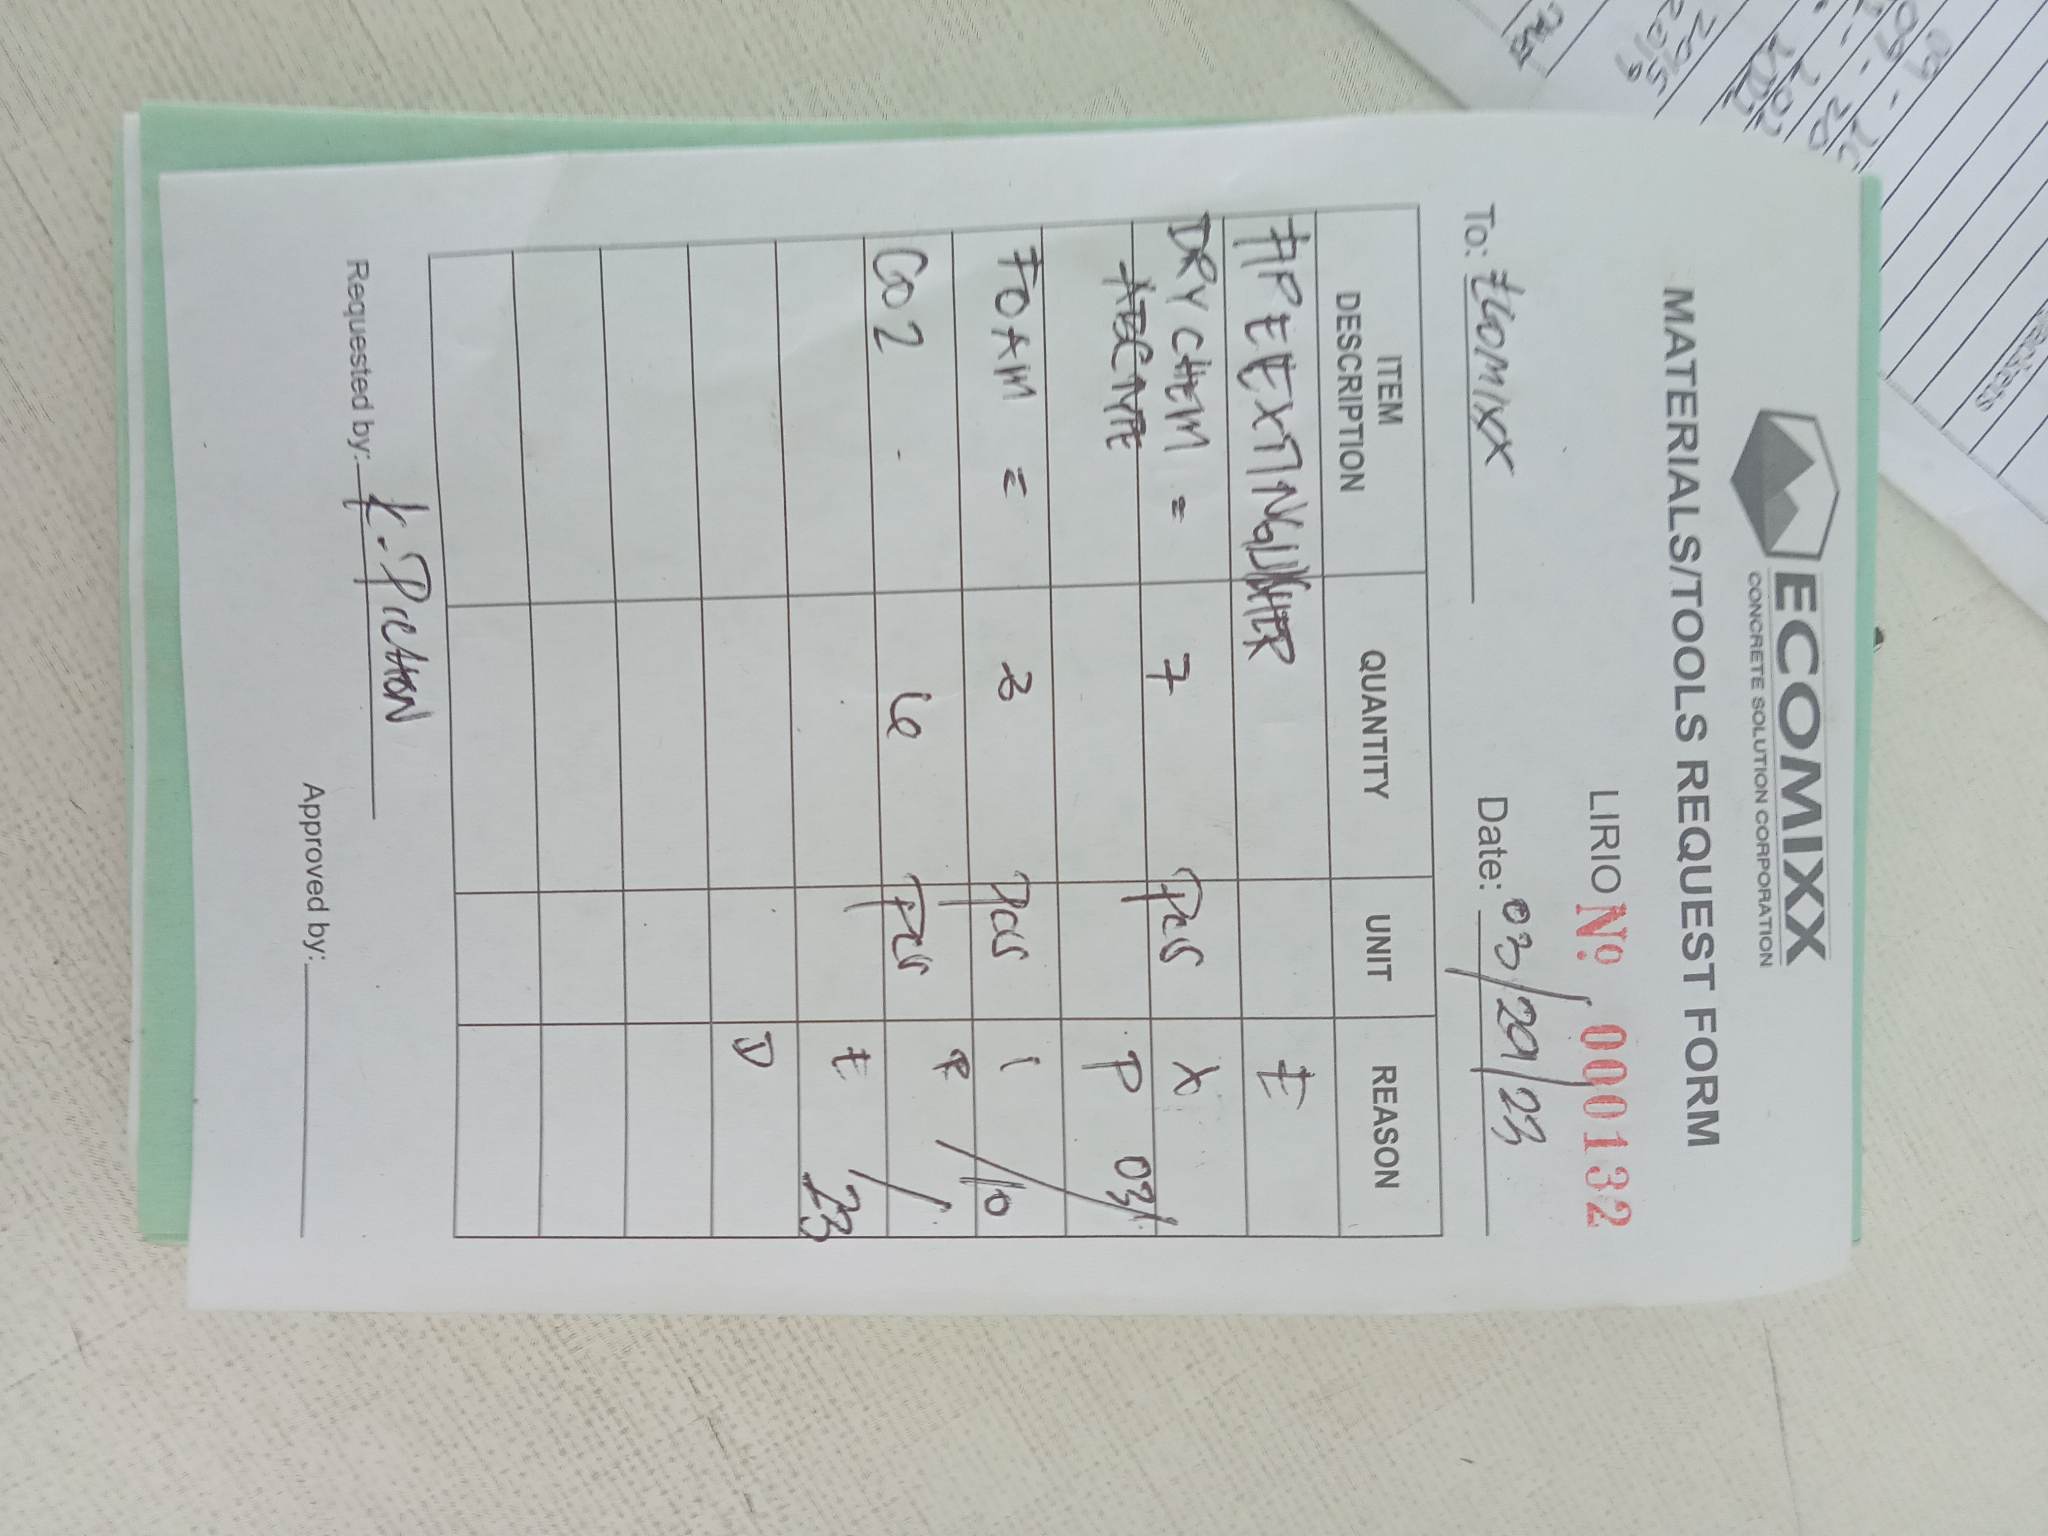 ECOMIXX
CONCRETE SOLUTION CORPORATION
MATERIALS/TOOLS REQUEST FORM
LIRIO Nº 000132
To: ECOMIXX Date: 03/20/23
ITEM DESCRIPTION QUANTITY UNIT REASON
FIRE EXTINGUISHER E
DRY CHEM = 7 Pcs X
ABC TYPE P 03/
FOAM = 3 Pcs I /10
CO2 6 Pcs R /
E 23
D
Requested by: Approved by: